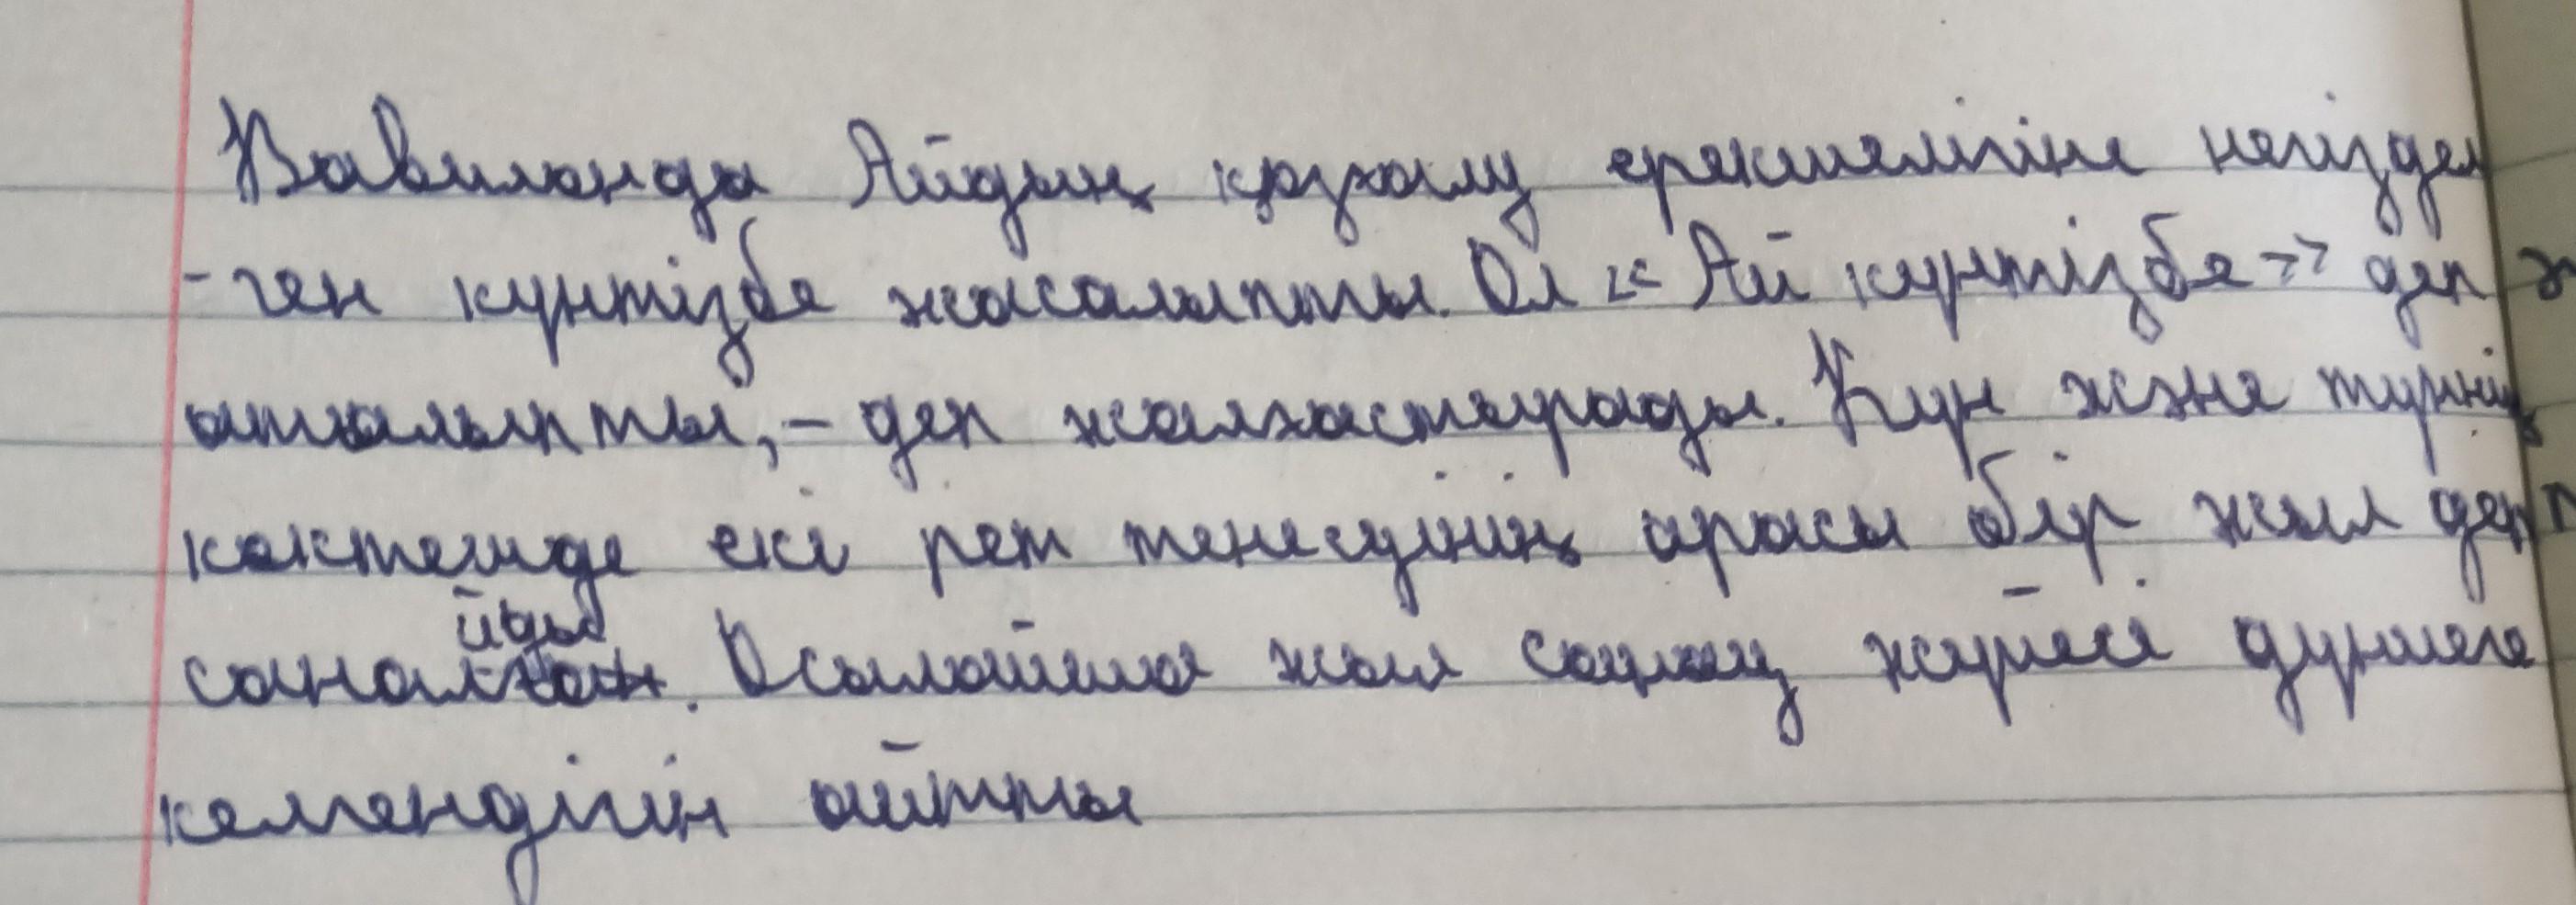 Вавилонда Айдың қозғалу ерекшелігіне негізде
-ген күнтізбе жасалыпты. Ол «Ай күнтізбе» деп
аталыпты, - деп жалғастырады. Күн және түннің
көктемде екі рет теңесуінің арасы бір жыл деп
саналйды. Осылайша жыл санау жүйесі дүниеге
келгендігін айтты